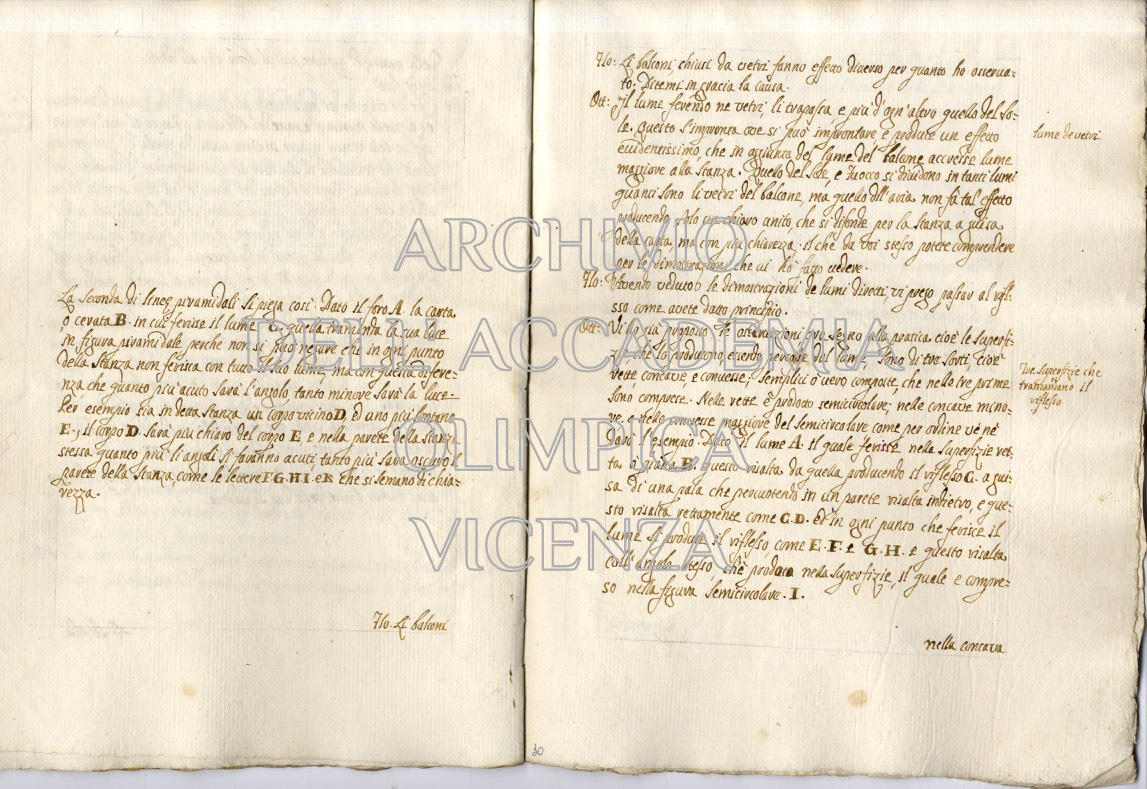 La seconda di linee piramidali si piega così. Dato il foro A. la carta
o cerata B. in cui ferisse il lume C. questa tramanda la sua luce
in figura piramidale perche non si può negare che in ogni punto
della Stanza non ferisca con tutto il suo lume, ma con questa differe-
nza, che quanto più acuto sarà l'angolo, tanto minore sarà la luce.
Per esempio sia in detta Stanza un corpo vicino D. ed uno più lontano
E., il corpo D. sarà più chiaro del corpo E, e nella parete della Stanza
stessa quanto più li angoli si faranno acuti, tanto più sarà oscuro il
parete della Stanza, come le lettere F G. H I. e K che si lemano di chia-
rezza.
Flo. Li balconi
Flo: Li balconi, chiusi da vetri fanno effetto diverso per quanto ho osserva-
to. Ditemi in gracia la causa.
Ott: Il lume ferendo ne vetri, li trapassa e più d'ogn'altro quello del So-
le. Questo s'impronta ove si può improntare, e produce un effetto
evidentissimo, che in aggiunta del lume del balcone accresse lume
maggiore alla Stanza. Quello del Sole, e Fuocco si dividono in tanti lumi
quanti sono li vetri del balcone, ma quello dell'aria non fà tal effetto
producendo solo un chiaro unito, che si difonde per la Stanza a guisa
della carta, ma con più chiarezza, il che da voi stesso potete comprendere
per le dimostrazioni che vi hò fatto vedere.
Flo: Avendo veduto le dimostrazioni de lumi diretti vi prego passar al rifle-
sso come avete datto principio.
Ott: Vi ho già proposto le osservazioni pro segno alla pratica cioè le superfi-
zie che lo producono, essendo percosse dal lume, sono di tre sorti, cioè
rette concave, e convesse. Semplici o vero composte, che nelle tre prime
sono comprese. Nelle rette è prodotto semicircolare, nelle concave mino-
re, e nelle convesse maggiore del semicircolare come per ordine ve ne
darò l'esempio. Dato il lume A. il quale ferisse nella superfizie ret-
ta o piana B. questo risalta da quella producendo il riflesso C. a gui-
sa di una pala che percuotendo in un parete risalta indietro, e que-
sto risalta rettamente come C. D. Ed in ogni punto che ferisce il
lume si produce il riflesso come E. F. e G. H. e questo risalta
coll'angolo stesso, che produce nella superfizie, il quale e compre-
so nella figura semicircolare. I.
nella concava
lume de vetri
Tre superfizie che
tramandano il
riflesso
30
ARCHIVIO
DELL'ACCADEMIA
OLIMPICA
VICENZA